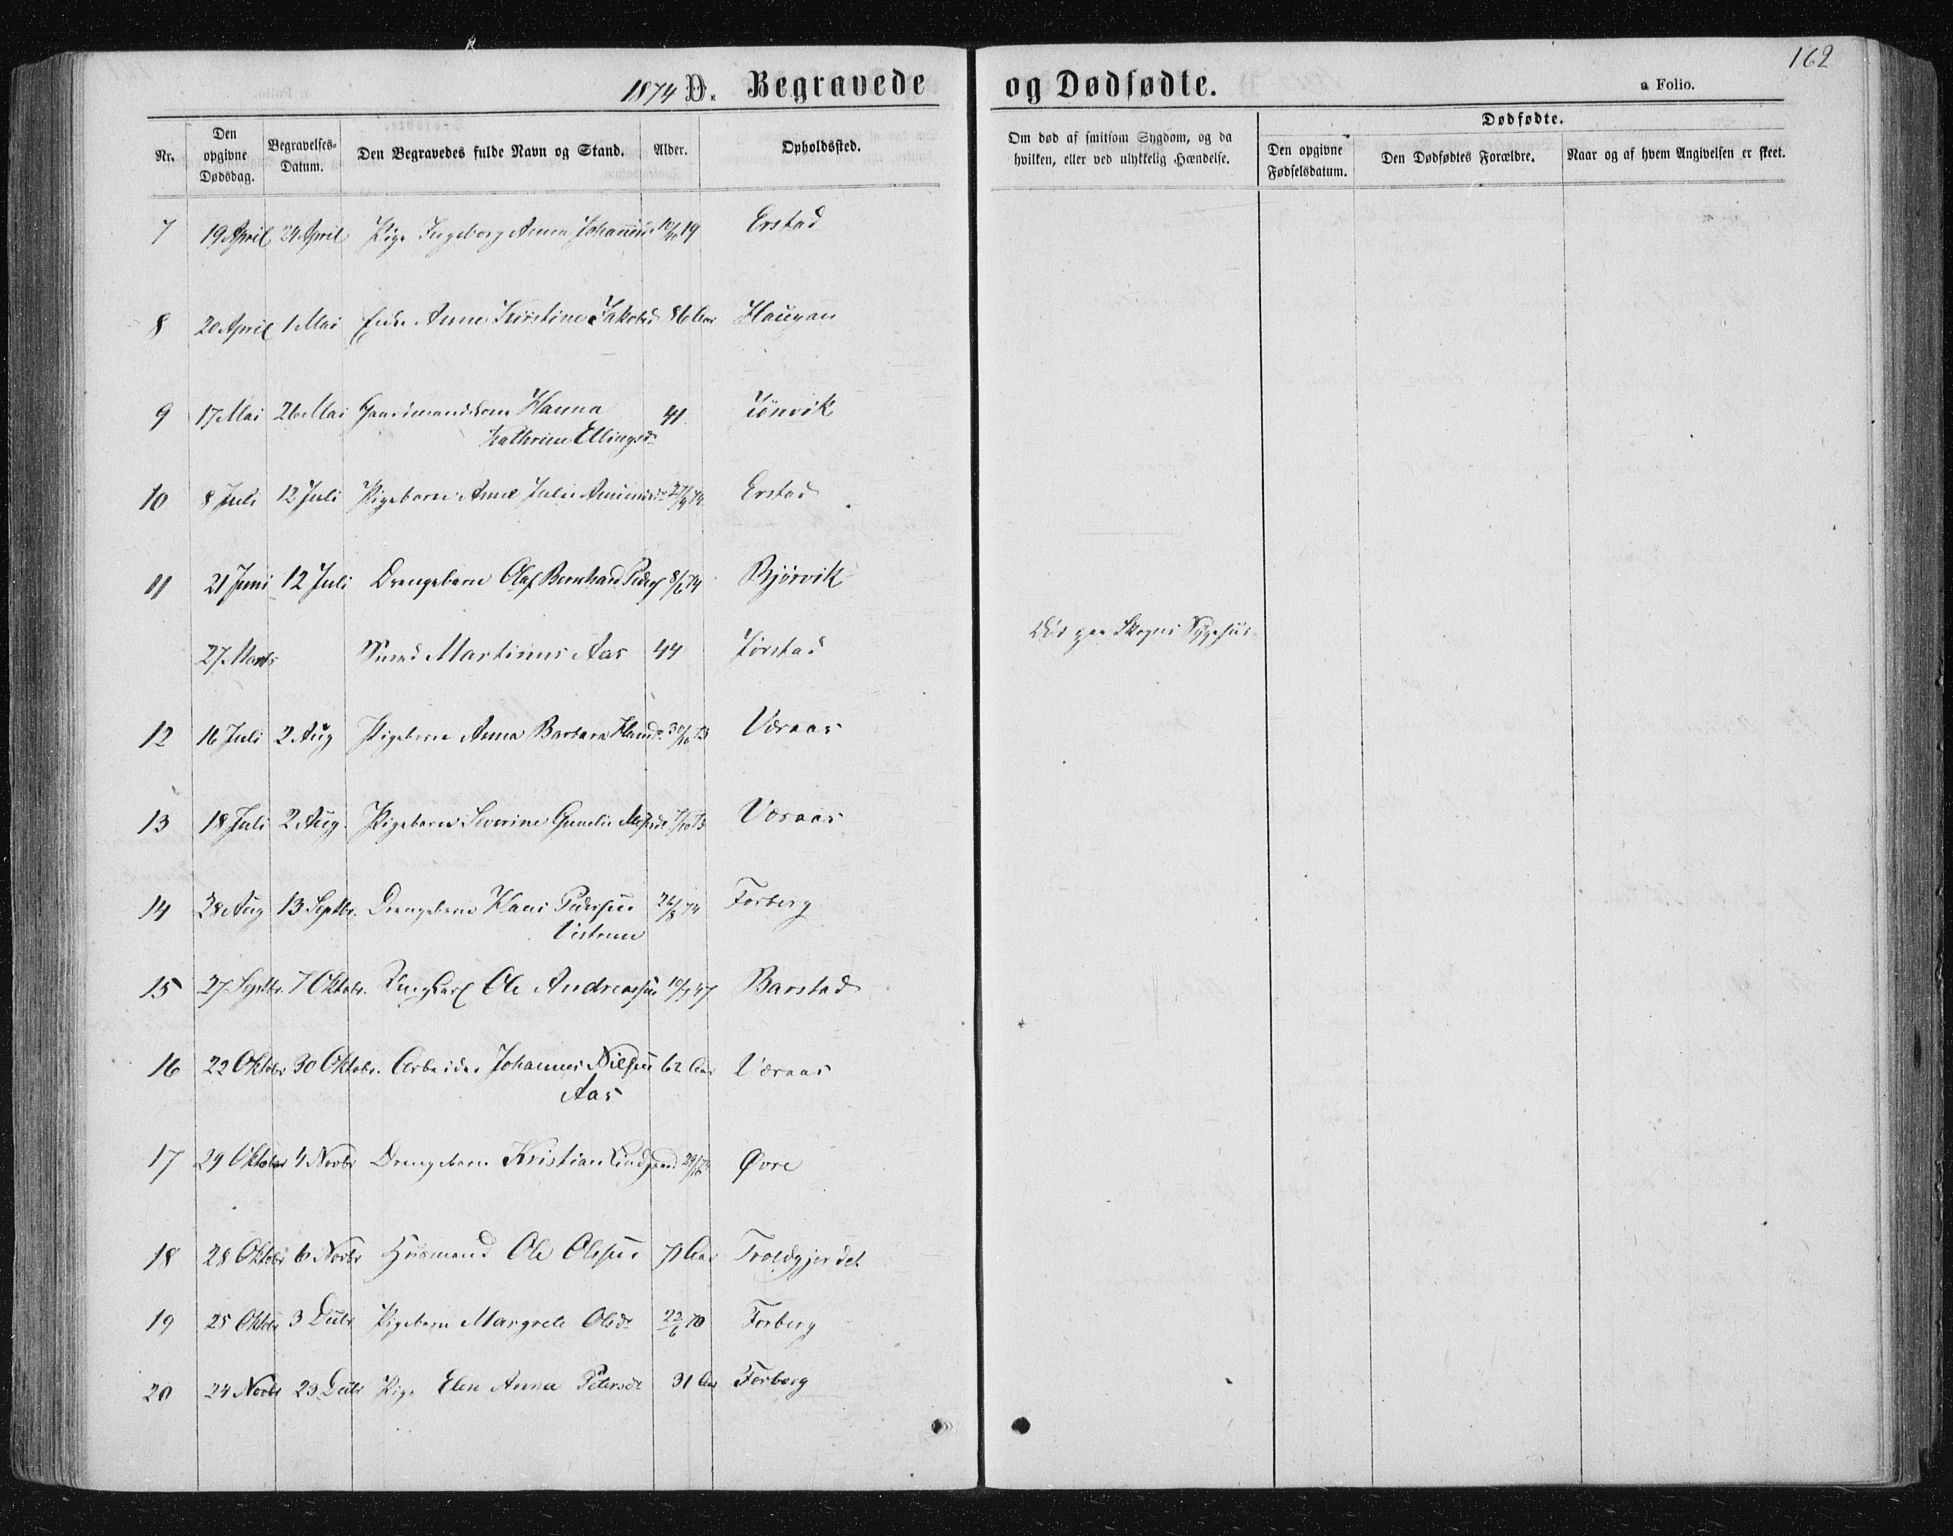 162
1874 D. Begravede og Dødsfødte.
a Folio.
Nr.
Den opgivne Dødsdag.
Begravelses-Datum.
Den Begravedes fulde Navn og Stand.
Alder.
Opholdssted.
Om død af smitsom Sygdom, og da hvilken, eller ved ulykkelig Hændelse.
Dødfødte.
Den opgivne Fødselsdatum.
Den Dødfødtes Forældre.
Naar og af hvem Angivelsen er skeet.
7 19 April 24 April Pige Ingeborg Anna 19 Erstad
8 20 April 1 Mai Anne Kirstine Jakobsd 86 Aar Haugan
9 17 Mai 26 Mai Hanna 41
Kathrine Ellingsd
10 8 Juli 12 Juli Pigebarn Anne Julie 74 Erstad
11 21 Juni 12 Juli Drengebarn Olaf Bernhard Peders 8/6 74 Bjørvik
27 Marts Martinus Aas 44 Død paa Skogns Sygehus
12 16 Juli 2 Aug Pigebarn Anna Barbara 73 Væraas
13 18 Juli 2 Aug. Pigebarn Severine 73 Væraas
14 28 Aug 13 Septbr. Drengebarn Hans Pedersen 26/8 74 Forberg
15 27 Septbr. 7 Oktobr. Ungkarl Ole Andreassen 47 Barstad
16 22 Oktobr 30 Oktobr. Arbeider Johannes Nilsen 62 Aar Væraas
Aas
17 29 Oktober 4 Novbr Drengebarn Kristian Øvre
18 28 Oktobr 6 Novbr Husmand Ole Olsen 71 Aar Troldgjerdet
19 25 Oktobr 3 Pigebarn Margrete Olsdt 22/6 70 Forberg
20 24 Novbr 23 Pige Elen Anna Petersdt 31 Aar Forberg